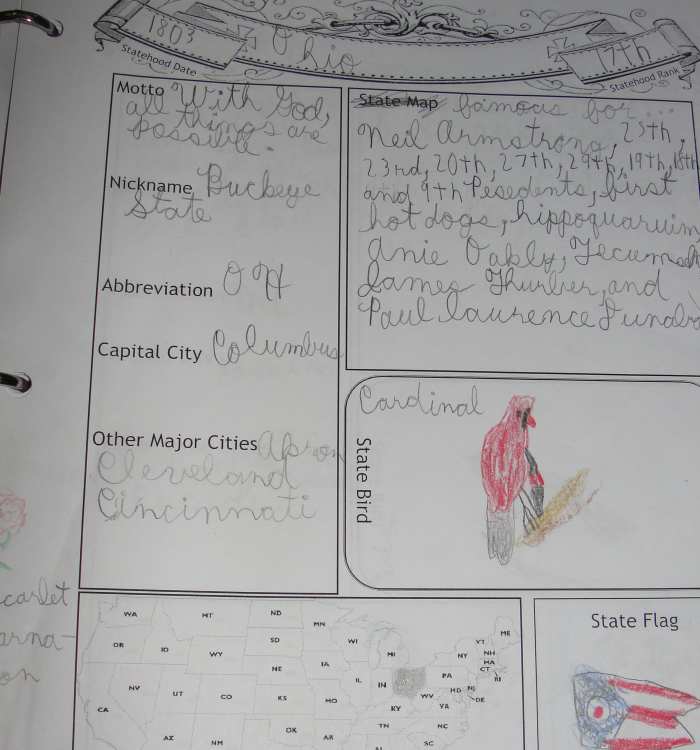 1803
Ohio
17th
Statehood Date
Statehood Rank
Motto With God,
all things are
possible.
Nickname Buckeye
State
Abbreviation OH
Capital City Columbus
Other Major Cities Akron
Cleveland
Cincinnati
State Map famous for...
Neil Armstrong, 25th,
23rd, 20th, 27th, 29th, 19th, 18th
and 9th Pesedents, first
hot dogs, hippoquaruim
Anie Oakly, Tecumseh
James Thurber, and
Paul laurence Dunba
Cardinal
State Bird
scarlet
carna-
on
WA
MT
ND
MN
OR
ID
SD
WI
WY
MI
NY
VT
ME
NH
MA
CT
RI
NE
IA
PA
NV
UT
CO
KS
IL
IN
MO
WV
MD
NJ
DE
VA
KY
CA
AZ
NM
OK
AR
TN
NC
AL
SC
State Flag